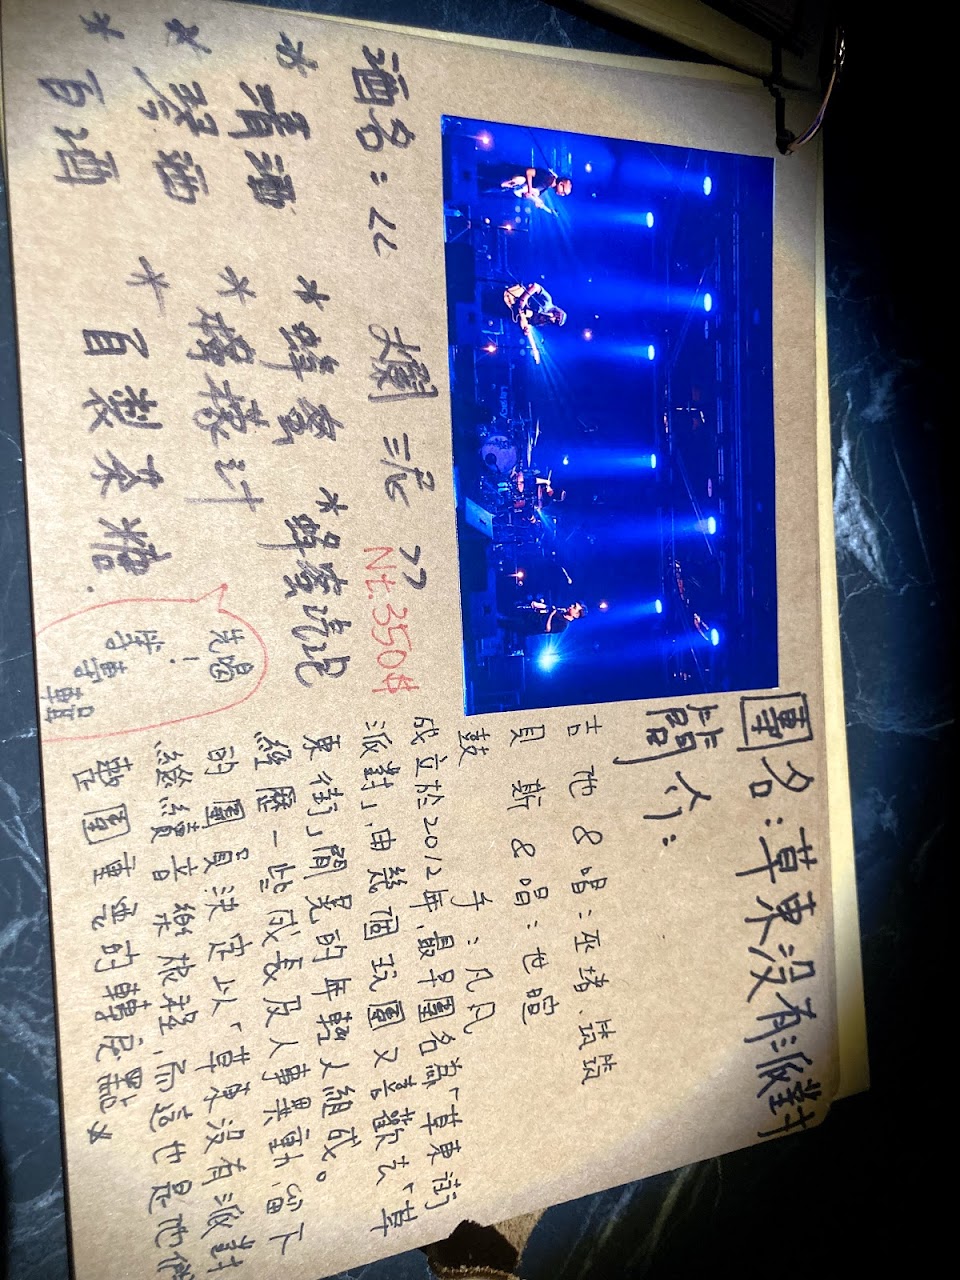 團名:草東沒有派對
簡介:
吉他&唱:巫堵、筑筑
貝斯&唱:世暄
鼓手:凡凡
成立於2012年,最早團名為「草東街
派對」,由幾個玩團又喜歡去「草
東街」閒晃的年輕人組成。
經歷一些成長及人事異動,留下
的團員決定以「草東沒有派對
繼續音樂旅程,而這也是他們
團重要的轉戾點*
酒名:“爛泥”
Nt.350$
*清酒 *蜂蜜 *蜂蜜汽泡
*琴酒 *檸檬汁
*白酒 *自製果糖.
先喝!